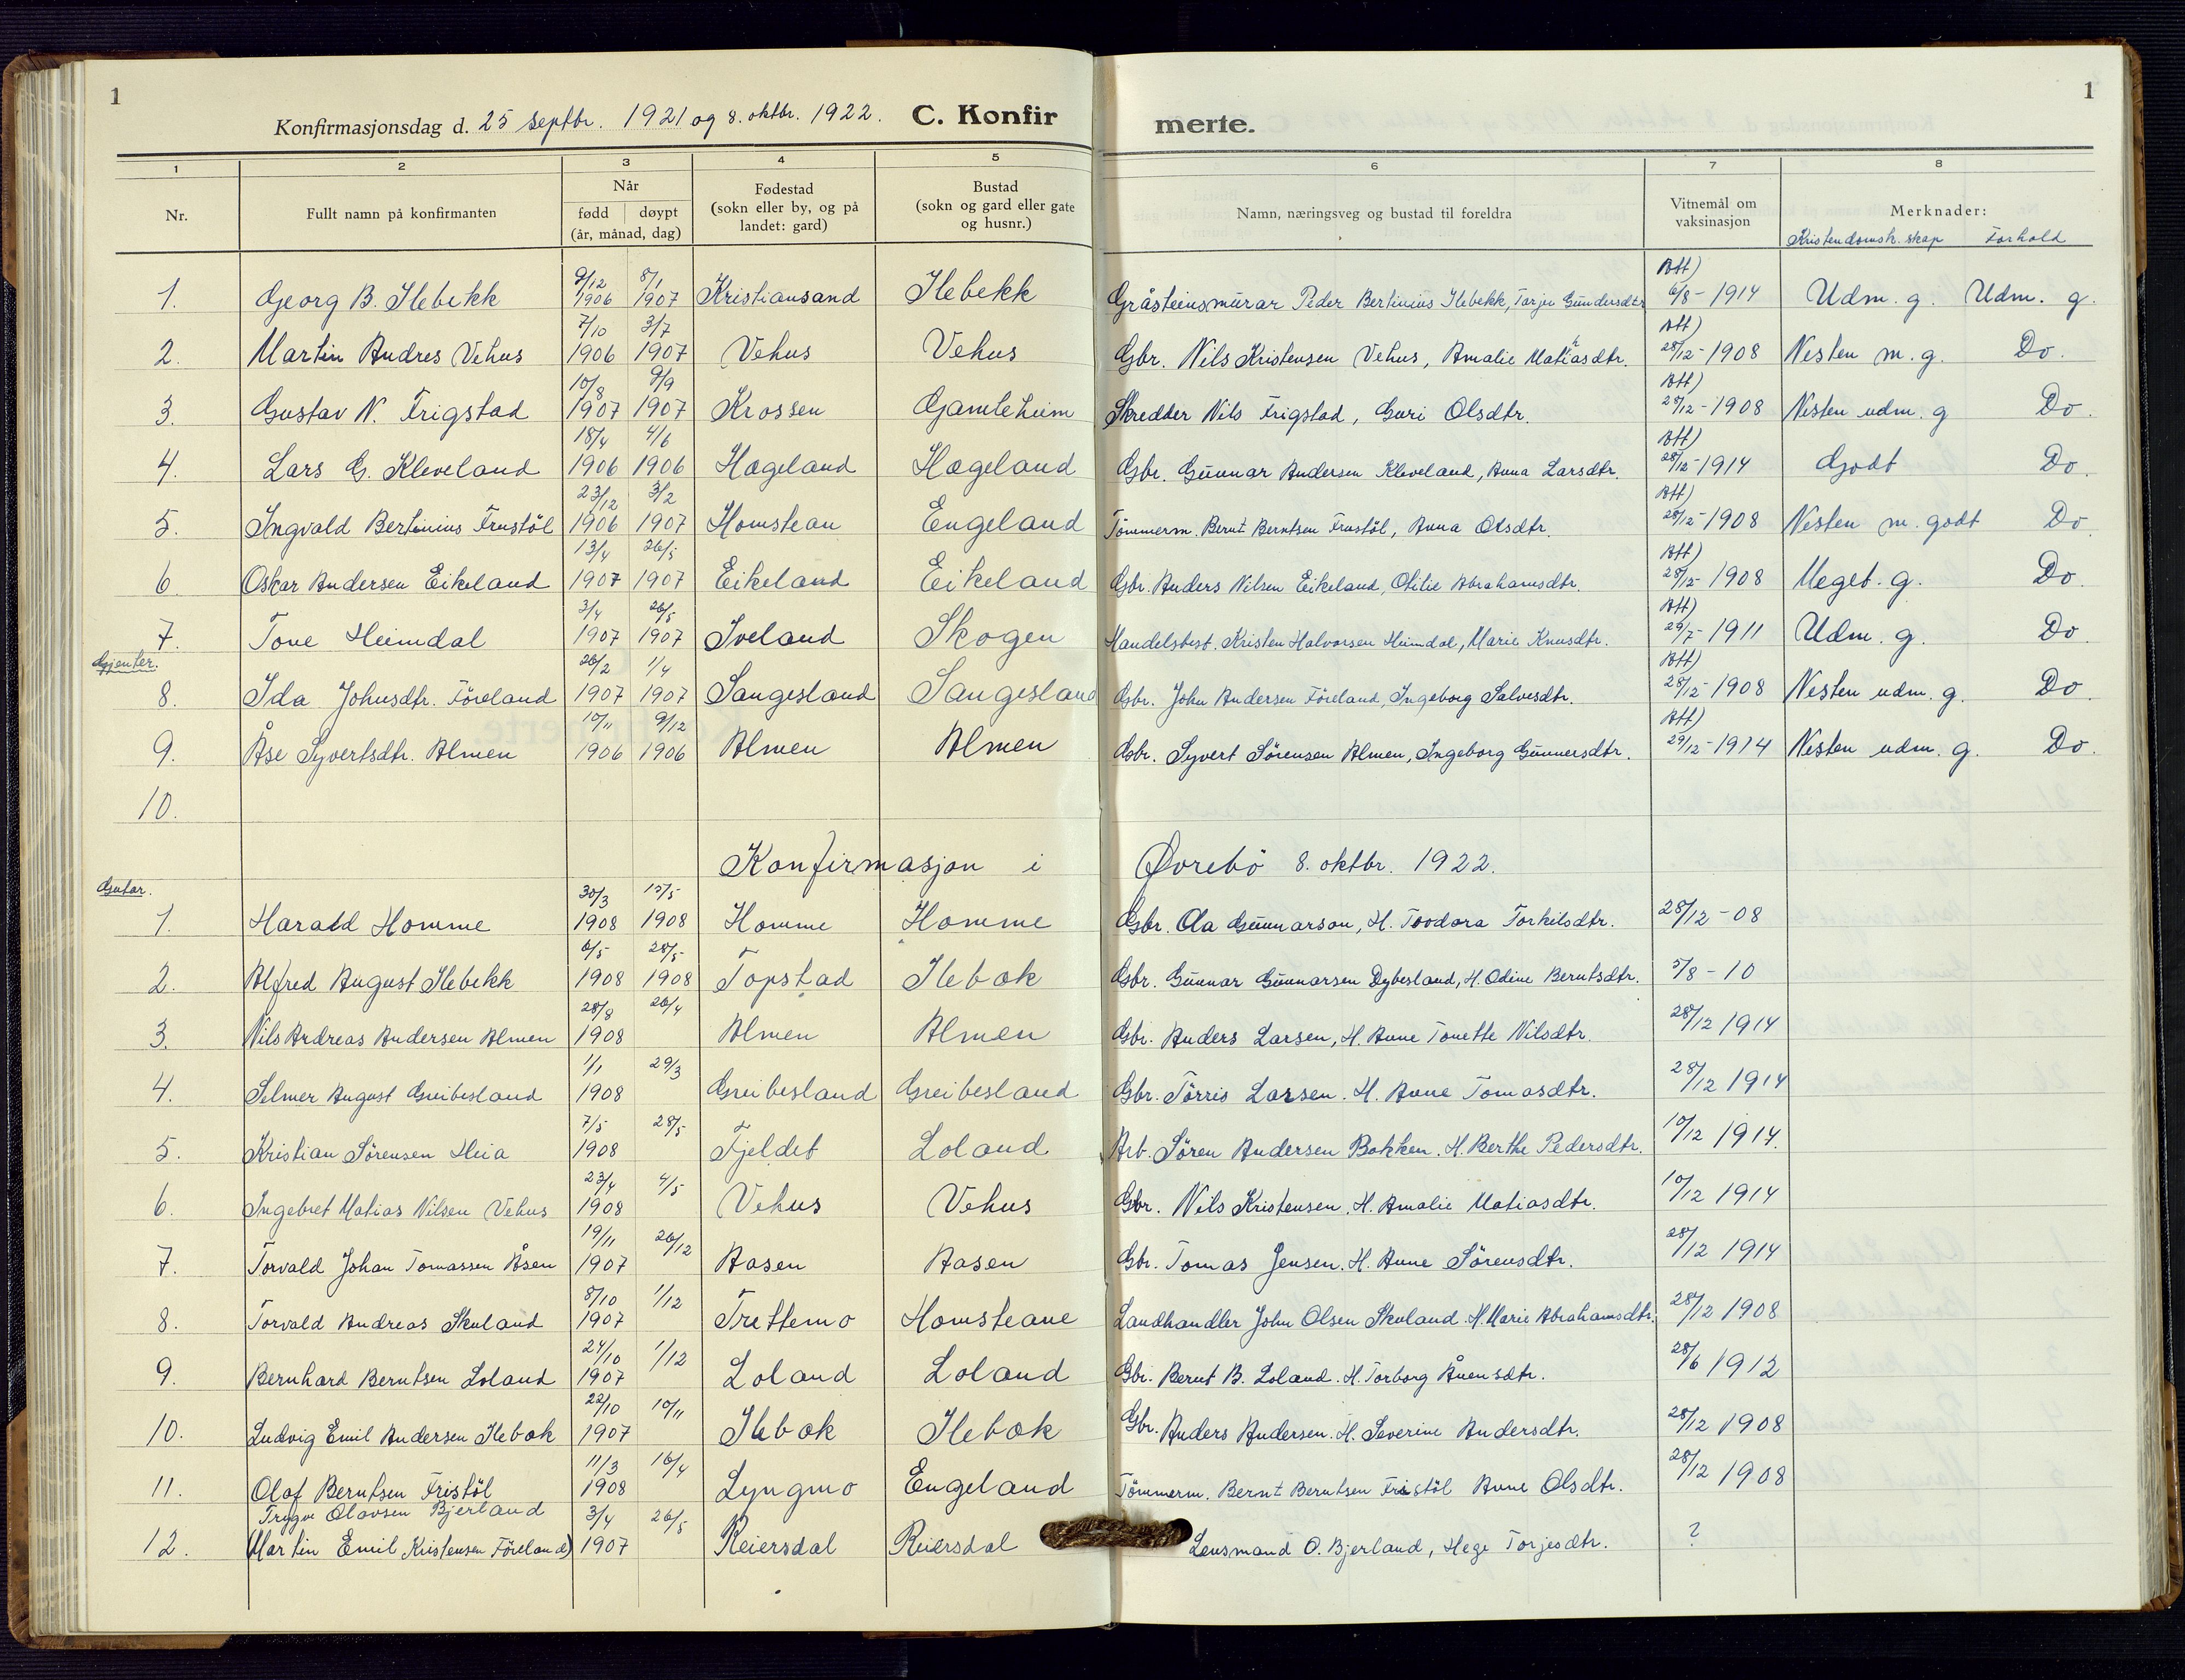 1
Konfirmasjonsdag d. 25 septbr. 1921 og 8. oktbr. 1922. C. Konfirmerte.
1
1 2 3 4 5 6 7 8
Nr. Fullt namn på konfirmanten Når fødd døypt (år, månad, dag) Fødestad (sokn eller by, og på landet: gard) Bustad (sokn og gard eller gate og husnr.) Namn, næringsveg og bustad til foreldra Vitnemål om vaksinasjon Merknader:
Kristendomsk.skap Forhold
1. Georg B. Ilebekk 9/12 1906 8/1 1907 Kristiansand Ilebekk Gråsteinsmurar Peder Bertinius Ilebekk, Torjer Gundersdtr Att) 6/8-1914 Udm. g. Udm. g.
2. Martin Andres Vehus 7/10 1906 3/7 1907 Vehus Vehus Gbr. Nils Kristensen Vehus, Amalie Matiasdtr. Att) 28/12-1908 Nesten m. g. Do.
3. Gustav N. Frigstad 10/8 1907 9/9 1907 Krossen Gamleheim Skredder Nils Frigstad, Guri Olsdtr. Att) 28/12-1908 Nesten udm. g Do.
4. Lars G. Kleveland 18/4 1906 4/6 1906 Hægeland Hægeland Gbr. Gunnar Andersen Kleveland, Anna Larsdtr. Att) 28/12-1914 Godt Do.
5. Ingvald Bertinius Frustöl 23/12 1906 3/2 1907 Homstean Engeland Tömmerm. Bernt Berntsen Frustöl, Anna Olsdtr. Att) 28/12-1908 Nesten m. godt Do.
6. Oskar Andersen Eikeland 13/4 1907 26/5 1907 Eikeland Eikeland Gbr. Anders Nilsen Eikeland, Otilie Abrahamsdtr. Att) 28/12-1908 Meget. g. Do.
7. Tone Heimdal 3/4 1907 26/5 1907 Iveland Skogen Handelsbest. Kristen Halvorsen Heimdal, Marie Knusdtr. Att) 26/7-1911 Udm. g. Do
Gjenter.
8. Ida Johnsdtr. Föreland 26/2 1907 1/4 1907 Sangesland Sangesland Gbr. John Andersen Föreland, Ingeborg Salvesdtr. Att) 28/12-1908 Nesten udm. g. Do
9. Åse Syvertsdtr. Almen 10/11 1906 9/12 1906 Almen Almen Gbr. Syvert Sörensen Almen, Ingeborg Gunnersdtr. Att) 29/12-1914 Nesten udm. g. Do.
10.
Konfirmasjon i Øvrebö 8. oktbr. 1922.
Gutar.
1. Harald Homme 30/3 1908 15/5 1908 Homme Homme Gbr. Ola Gunnarson, H. Toodora Torkilsdtr. 28/12-08
2. Alfred August Ilebekk 6/5 1908 28/5 1908 Topstad Ilebæk Gbr. Gunnar Gunnarsen Dybesland, H. Odine Berntsdtr. 5/8-10
3. Nils Andreas Andersen Almen 28/8 1908 26/4 Almen Almen Gbr. Anders Larsen, H. Anne Tonette Nilsdtr. 28/12 1914
4. Selmer August Greibesland 1/1 1908 29/3 Greibesland Greibesland Gbr. Törris Larsen. H. Anne Tomasdtr. 28/12 1914
5. Kristian Sörensen Heia 7/5 1908 28/5 Fjeldet Loland Arb. Sören Andersen Bakken. H. Berthe Pedersdtr. 10/12 1914.
6. Ingebret Matias Nilsen Vehus 23/4 1908 4/5 Vehus Vehus Gbr. Nils Kristensen. H. Amalie Matiasdtr. 10/12 1914
7. Torvald Johan Tomassen Åsen 19/11 1907 26/12 Aasen Aasen Gbr. Tomas Jensen. H. Anne Sörensdtr. 28/12 1914
8. Torvald Andreas Skuland 8/10 1907 1/12 Trettemo Homsteane Landhandler John Olsen Skuland. H. Marie Abrahamsdtr. 28/12 1908
9. Bernhard Berntsen Loland 24/10 1907 1/12 Loland Loland Gbr. Bernt B. Loland. H. Torborg Ånensdtr. 28/6 1912
10. Ludvig Emil Andersen Ilebæk 22/10 1907 10/11 Ilebæk Ilebæk Gbr. Anders Andersen. H. Severine Andersdtr. 28/12 1908
11. Olaf Berntsen Fristöl 11/3 1908 16/4 Lyngmo Engeland Tömmerm. Bernt Berntsen Fristöl Anne Olsdtr. 28/12 1908
Trygve Olavsen Bjerland
12. (Martin Emil Kristensen Föreland) 3/4 1907 26/5 Reiersdal Reiersdal Lensmand O. Bjerland, Hege Torjesdtr. ?